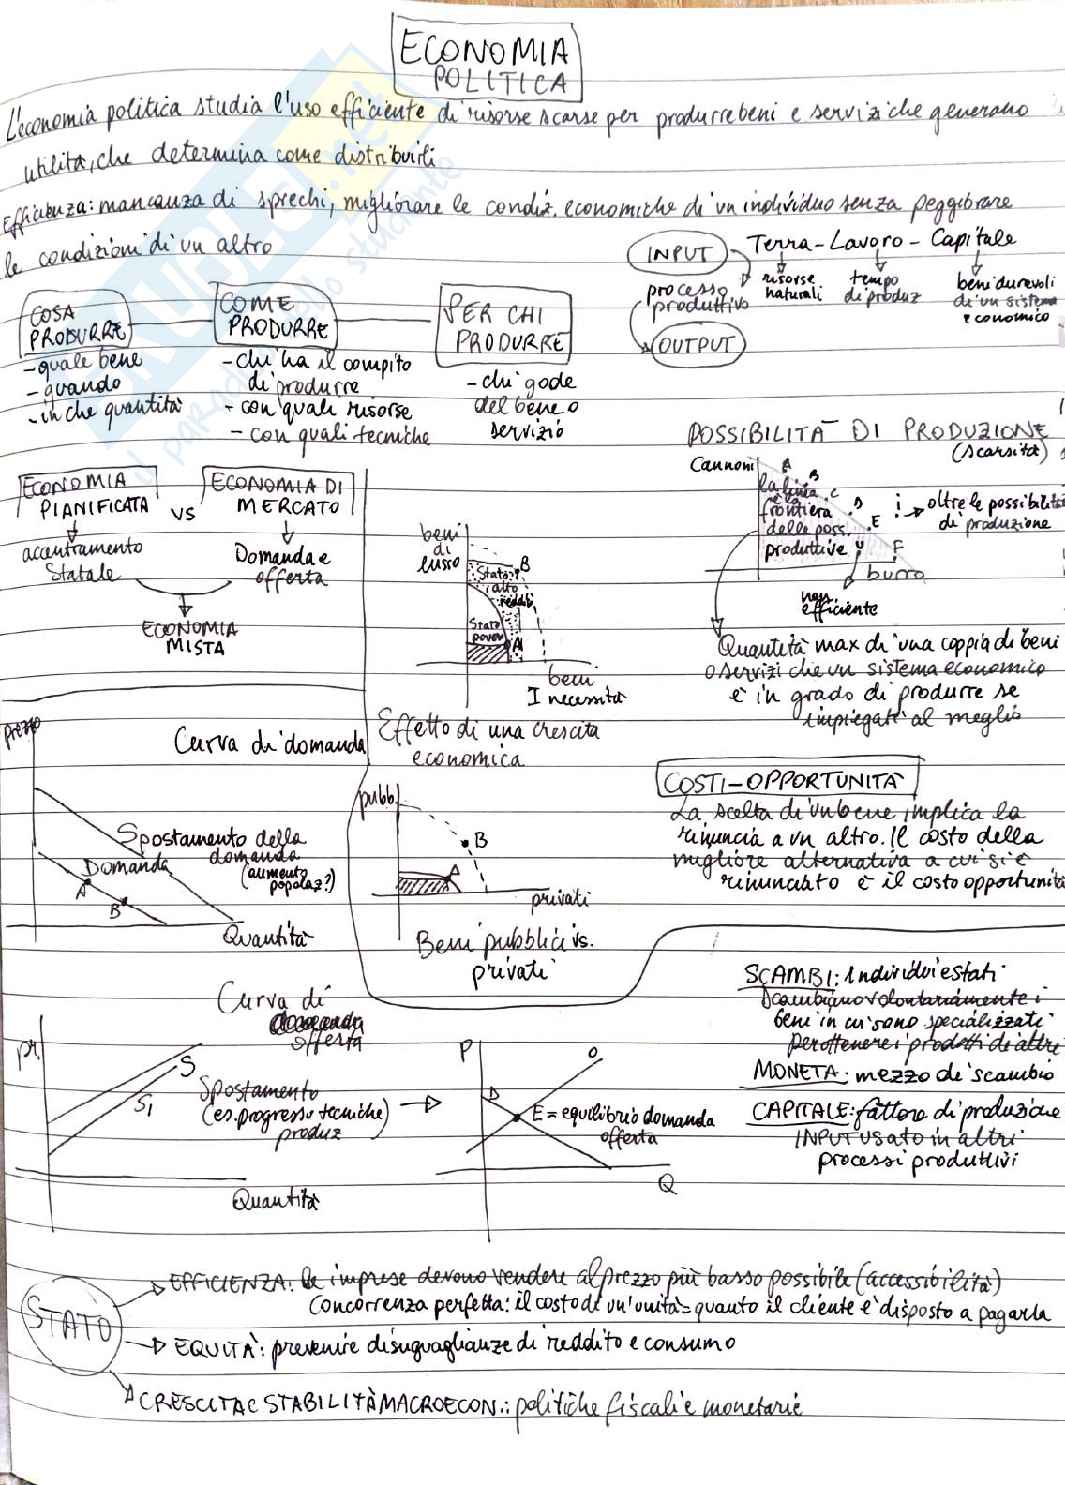 ECONOMIA
POLITICA
L'economia politica studia l'uso efficiente di risorse scarse per produrre beni e servizi che generano
utilità, che determina come distribuirli
Efficienza: mancanza di sprechi, migliorare le condiz. economiche di un individuo senza peggiorare
le condizioni di un altro
INPUT
Terra - Lavoro - Capitale
risorse
naturali
tempo
di produz
beni durevoli
di un sistema
economico
processo
produttivo
OUTPUT
COSA
PRODURRE
- quale bene
- quando
- in che quantità
COME
PRODURRE
- chi ha il compito
di produrre
- con quali risorse
- con quali tecniche
PER CHI
PRODURRE
- chi gode
del bene o
servizio
ECONOMIA
PIANIFICATA
VS
ECONOMIA DI
MERCATO
accentramento
statale
Domanda e
offerta
ECONOMIA
MISTA
beni
di
lusso
Stato
alto
reddito
B
Stato
povero
A
beni
I necessità
Effetto di una crescita
economica
POSSIBILITÀ DI PRODUZIONE
(scarsità)
Cannoni
A
B
C
D
E
F
la linea
è la
frontiera
delle poss.
produttive
U
I
oltre le possibilità
di produzione
burro
non
efficiente
Quantità max di una coppia di beni
o servizi che un sistema economico
è in grado di produrre se
impiegati al meglio
prezzo
Curva di domanda
Spostamento della
domanda
(aumento
popolaz?)
Domanda
A
B
Quantità
pubb.
B
A
privati
Beni pubblici vs.
privati
COSTI-OPPORTUNITÀ
La scelta di un bene implica la
rinuncia a un altro. Il costo della
migliore alternativa a cui si è
rinunciato è il costo opportunità
SCAMBI: Individui e stati
scambiano volontariamente i
beni in cui sono specializzati
per ottenere i prodotti di altri
MONETA: mezzo di scambio
CAPITALE: fattore di produzione
INPUT usato in altri
processi produttivi
Curva di
offerta
pr
S
S1
Spostamento
(es. progresso tecniche
produz)
Quantità
P
O
D
E = equilibrio domanda
offerta
Q
STATO
EFFICIENZA: le imprese devono vendere al prezzo più basso possibile (accessibilità)
Concorrenza perfetta: il costo di un'unità = quanto il cliente è disposto a pagarla
EQUITÀ: prevenire disuguaglianze di reddito e consumo
CRESCITA E STABILITÀ MACROECON.: politiche fiscali e monetarie